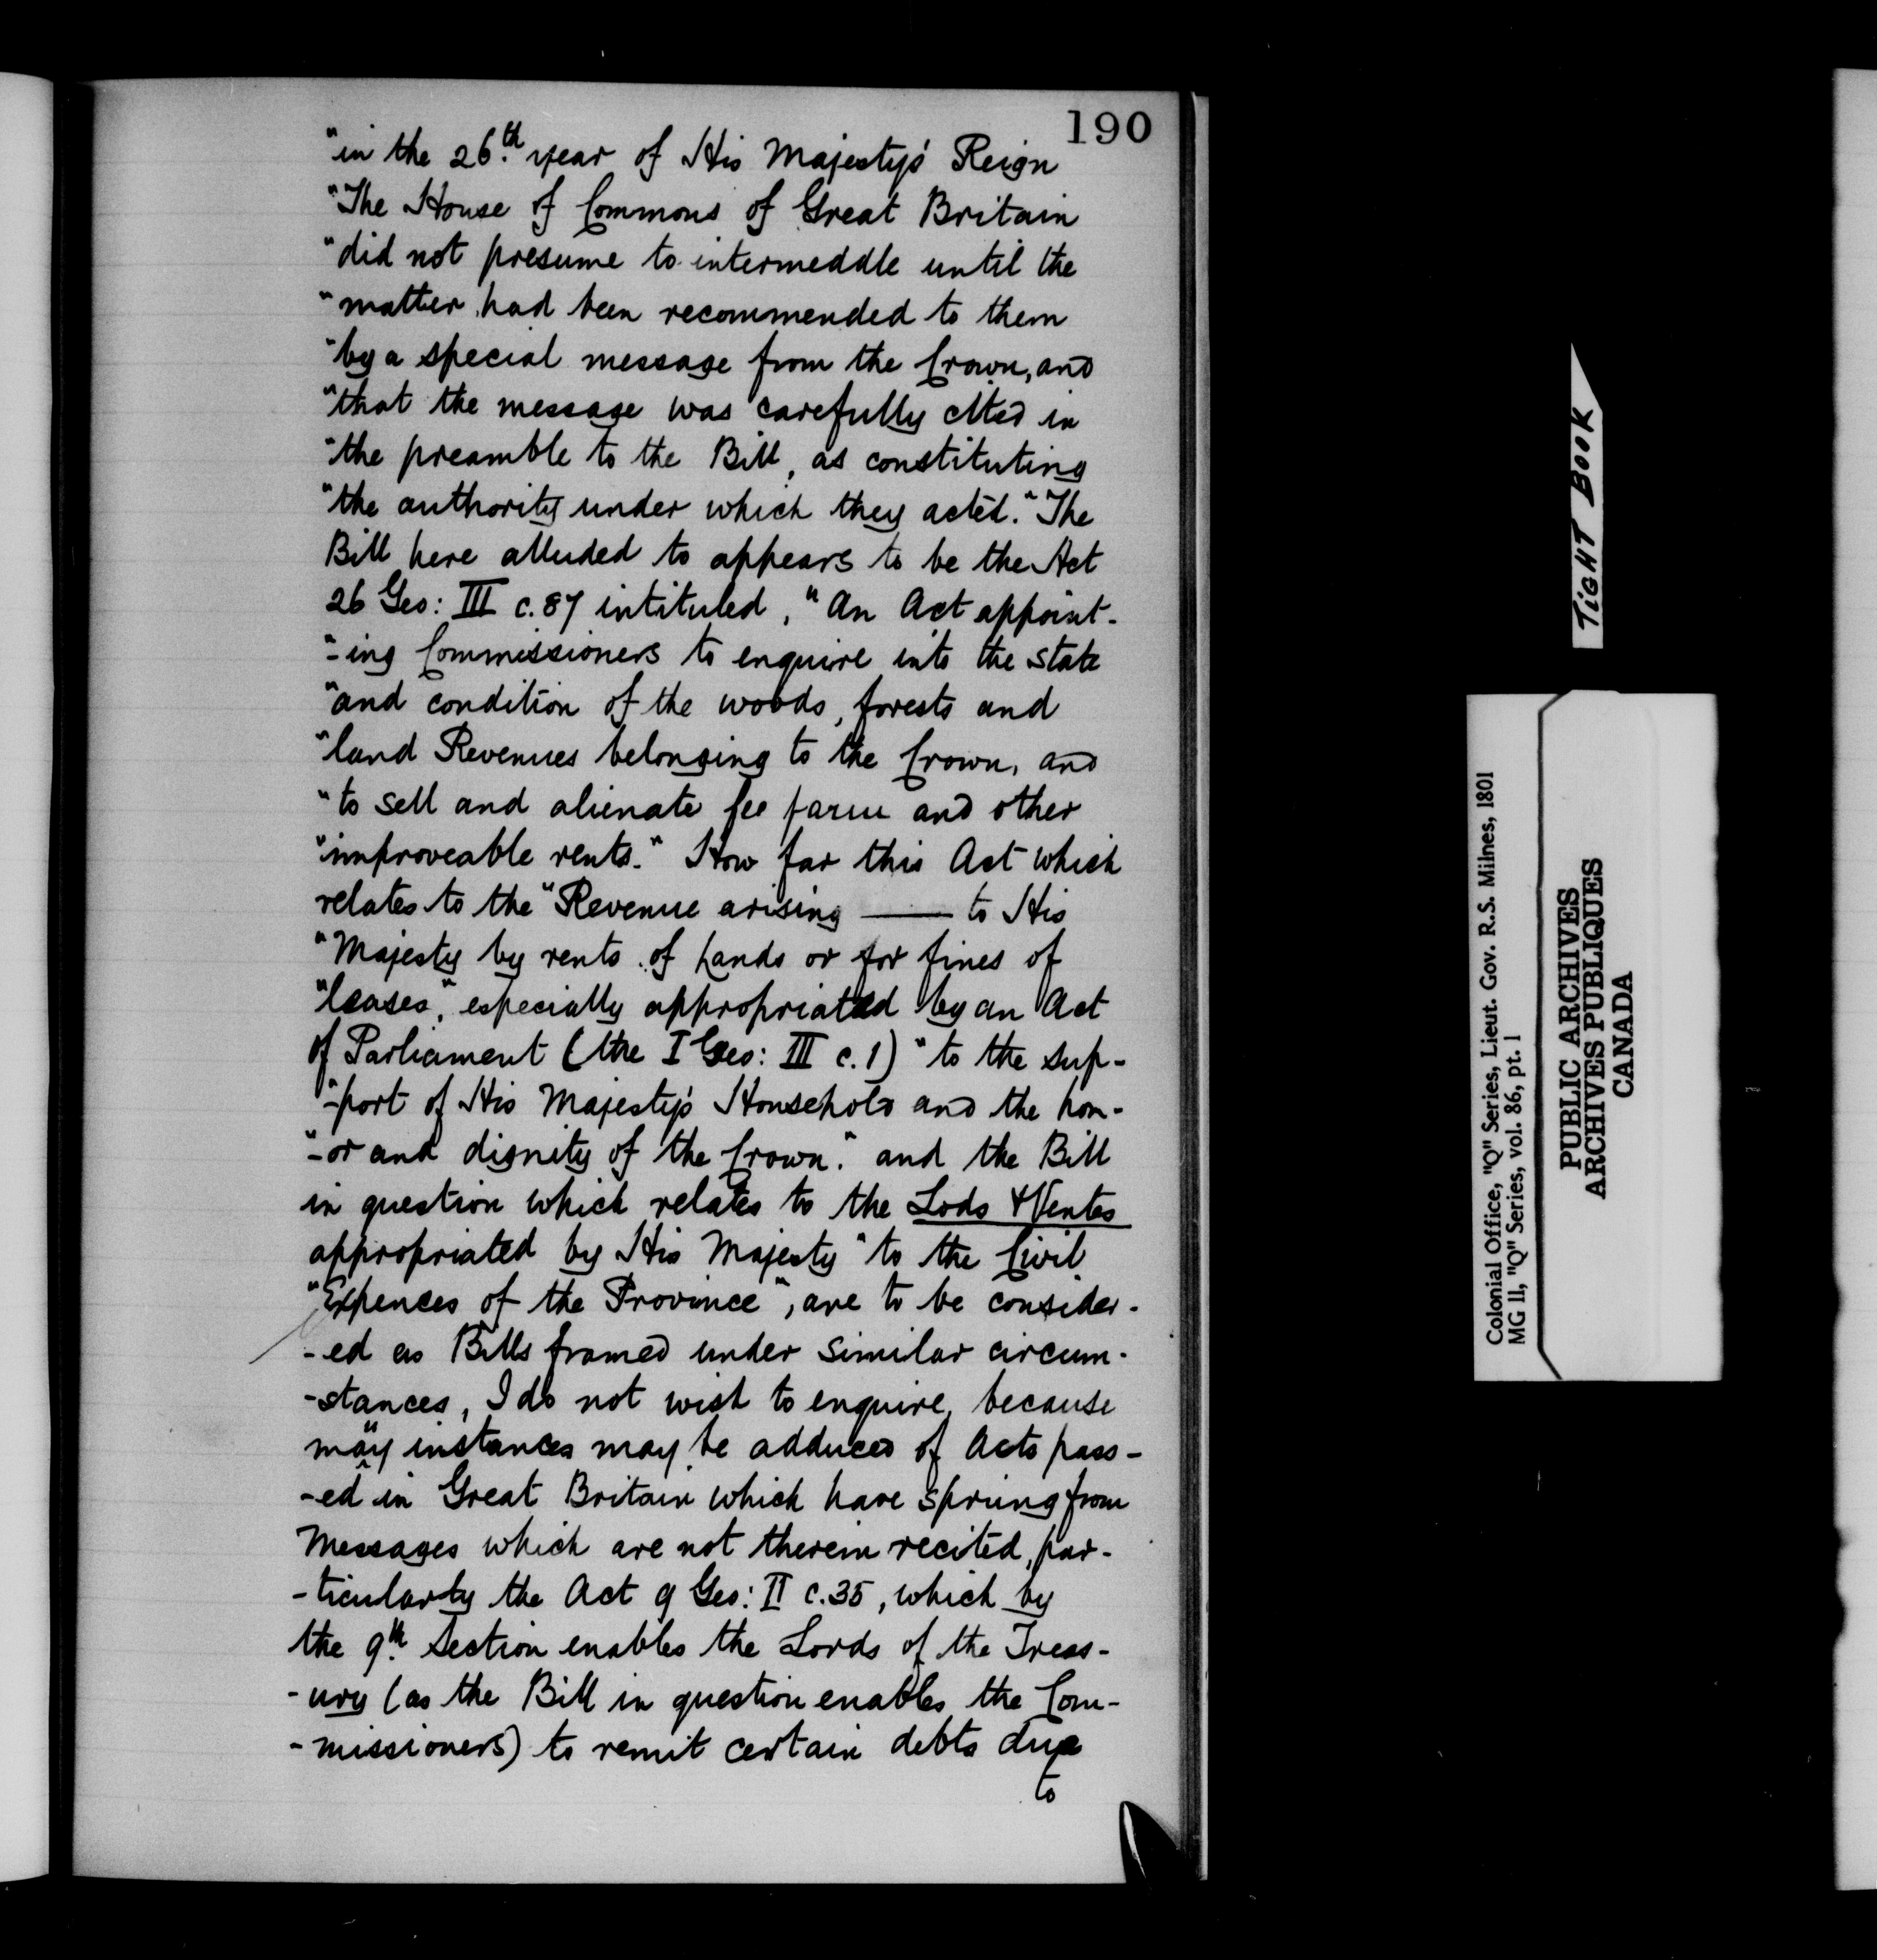 190
"in the 26.th year of His Majesty's Reign
"The House of Commons of Great Britain
"did not presume to intermeddle until the
"matter had been recommended to them
"by a special message from the Crown, and
"that the message was carefully cited in
"the preamble to the Bill, as constituting
"the authority under which they acted." The
Bill here alluded to appears to be the Act
26 Geo: III c. 87 intituled, "An Act appoint-
"-ing Commissioners to enquire into the state
"and condition of the woods, forests and
"land Revenues belonging to the Crown, and
"to sell and alienate fee farm and other
"improveable rents." How far this Act which
relates to the "Revenue arising —— to His
"Majesty by rents of Lands or for fines of
"leases," especially appropriated by an Act
of Parliament (the I Geo: III c. 1) "to the sup-
"-port of His Majesty's Household and the hon-
"-or and dignity of the Crown." and the Bill
in question which relates to the Lods & Ventes
appropriated by His Majesty "to the Civil
"Expences of the Province", are to be consider-
-ed as Bills framed under similar circum-
-stances, I do not wish to enquire, because
many instances may be adduced of Acts pass-
-ed in Great Britain which have sprung from
Messages which are not therein recited, par-
-ticularly the Act 9 Geo: II c. 35, which by
the 9.th section enables the Lords of the Treas-
-ury (as the Bill in question enables the Com-
-missioners) to remit certain debts due
to
TIGHT BOOK
Colonial Office, "Q" Series, Lieut. Gov. R.S. Milnes, 1801
MG 11, "Q" Series, vol. 86, pt. 1
PUBLIC ARCHIVES
ARCHIVES PUBLIQUES
CANADA